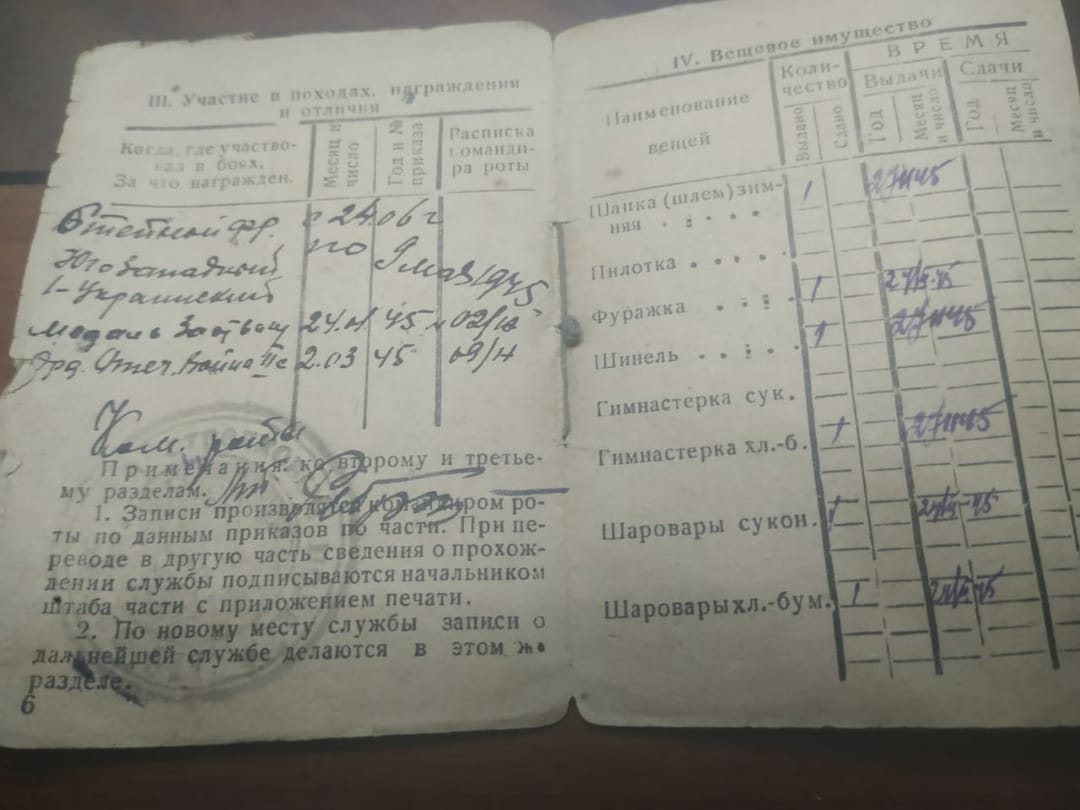 III. Участие в походах, награждения
и отличия
Когда, где участво-
вал в боях.
За что награжден.
Месяц и
число
Год и №
приказа
Расписка
команди-
ра роты
Степной фр. с 24.06 г
Юго Западный по 9 мая 1945
1-Украинский
Медаль За отвагу 24.01 45 02/н
Орд. Отеч. Война II с 2.03 45 09/н
Ком. роты
Примечания: ко второму и третье-
му разделам.
1. Записи производятся командиром ро-
ты по данным приказов по части. При пе-
реводе в другую часть сведения о прохож-
дении службы подписываются начальником
штаба части с приложением печати.
2. По новому месту службы записи о
дальнейшей службе делаются в этом же
разделе.
6
IV. Вещевое имущество
Наименование
вещей
Коли-
чество
Выдано
Сдано
ВРЕМЯ
Выдачи
Год
Месяц
и число
Сдачи
Год
Месяц
и число
Шапка (шлем) зим-
няя 1
Пилотка
Фуражка 1
Шинель 1
Гимнастерка сук.
Гимнастерка хл.-б. 1
Шаровары сукон. 1
Шаровары хл.-бум. 1